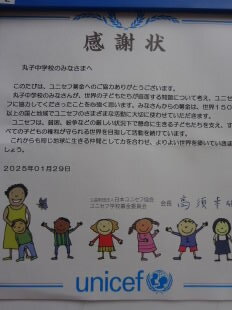 感謝状
丸子中学校のみなさまへ
このたびは、ユニセフ募金へのご協力ありがとうございます。
丸子中学校のみなさんが、世界の子どもたちが直面する問題について考え、ユニセ
フに協力してくださったことを心強く思います。みなさんからの募金は、世界150
以上の国と地域でユニセフのさまざまな活動に大切に使わせていただきます。
ユニセフは、貧困、紛争などの厳しい状況下で懸命に生きる子どもたちを支え、す
べての子どもの権利が守られる世界を目指して活動を続けています。
これからも同じ地球に生きる仲間として力を合わせ、よりよい世界を築いていきま
しょう。
2025年01月29日
公益財団法人日本ユニセフ協会
ユニセフ学校募金委員会
会長 高須幸雄
unicef